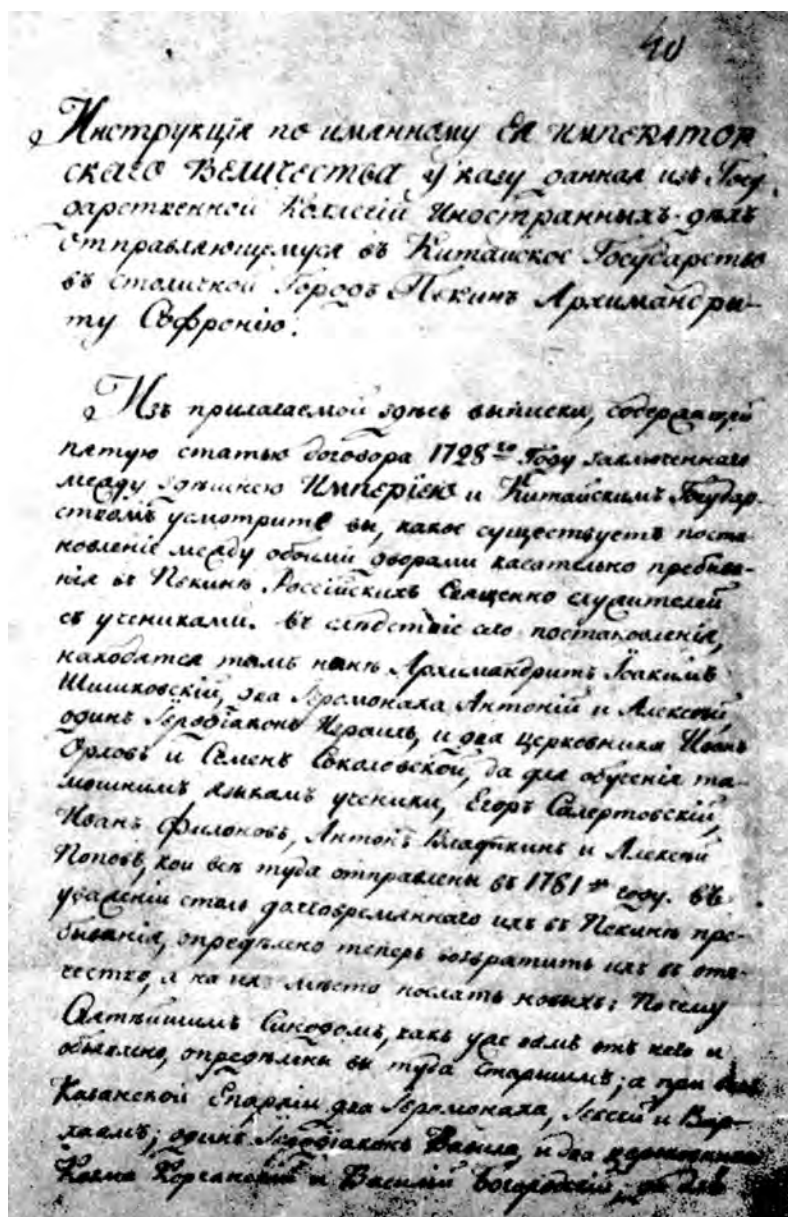 40
Инструкція по имянному Ея ИМПЕРАТОР
скаго Величества указу данная изъ Госу-
дарственной Коллегіи Иностранныхъ дѣлъ
отправляющемуся въ Китайское Государство
въ столичной Городъ Пекинъ Архимандри-
ту Софронію.
Изъ прилагаемой здѣсь выписки, содержащей
пятую статью договора 1728го Году заключеннаго
между здѣшнею Имперіею и Китайскимъ Государ-
ствомъ усмотрите вы, какое существуетъ поста-
новленіе между обоими дворами касательно пребыва-
нія въ Пекинѣ Россійскихъ Священно служителей
съ учениками. Въ слѣдствіе сего постановленія,
находятся тамъ нынѣ Архимандритъ Іоакимъ
Шишковскій, два Іеромонаха Антоній и Алексѣй,
одинъ Іеродіаконъ Израиль, и два церковника Иванъ
Орловъ и Семенъ Соколовской, да для обученія та-
мошнимъ языкамъ ученики, Егоръ Салертовскій,
Иванъ Филоновъ, Антонъ Владыкинъ и Алексѣй
Поповъ, кои всѣ туда отправлены въ 1781м году. Въ
уваженіи столь долговремяннаго ихъ въ Пекинѣ пре-
быванія, опредѣлено теперь возвратить ихъ въ оте-
чество, а на ихъ мѣсто послать новыхъ: Почему
Святѣйшимъ Синодомъ, какъ уже вамъ отъ него и
объявлено, опредѣлены вы туда Старшимъ; а при васъ
Казанской Епархіи два Іеромонаха, Іессей и Вар-
лаамъ; одинъ Іеродіаконъ Вавила, и два церковника
Козма Коргинскій и Василій Богородскій;